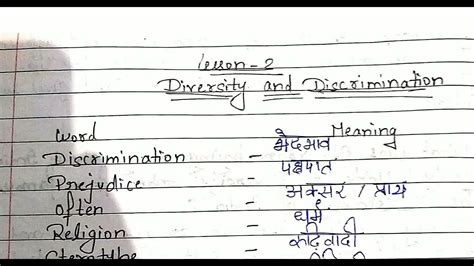 Lesson - 2
Diversity and Discrimination
Word Meaning
Discrimination - भेदभाव
Prejudice - पक्षपात
Often - अक्सर / प्राय
Religion - धर्म
रूढ़िवादी